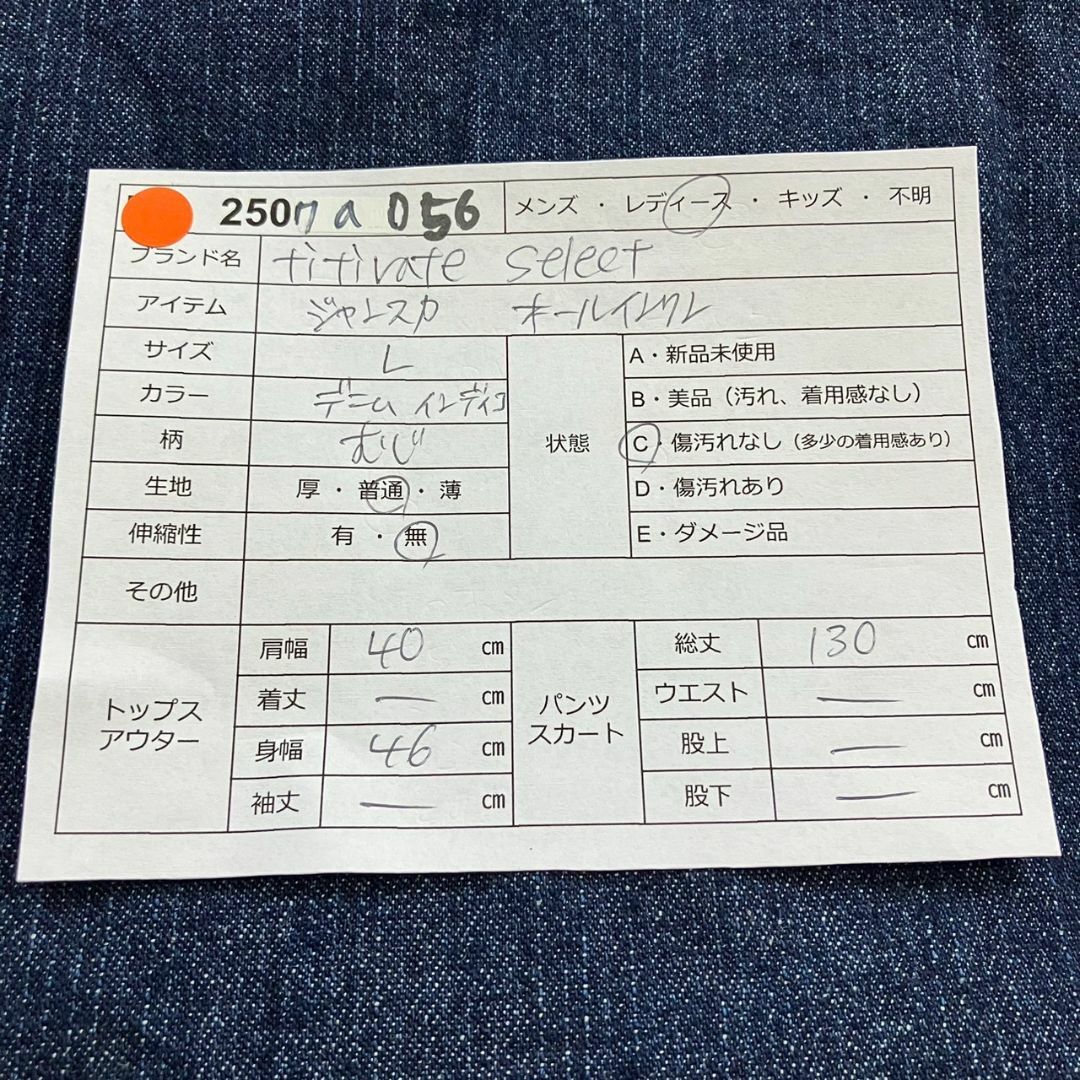 2507 a 056 メンズ ・ レディース ・ キッズ ・ 不明
ブランド名 titivate select
アイテム ジャンスカ オールインワン
サイズ L
カラー デニム インディゴ
柄 むじ
生地 厚 ・ 普通 ・ 薄
伸縮性 有 ・ 無
状態
A・新品未使用
B・美品（汚れ、着用感なし）
C・傷汚れなし（多少の着用感あり）
D・傷汚れあり
E・ダメージ品
その他
トップス
アウター
肩幅 40 cm
着丈 — cm
身幅 46 cm
袖丈 — cm
パンツ
スカート
総丈 130 cm
ウエスト — cm
股上 — cm
股下 — cm